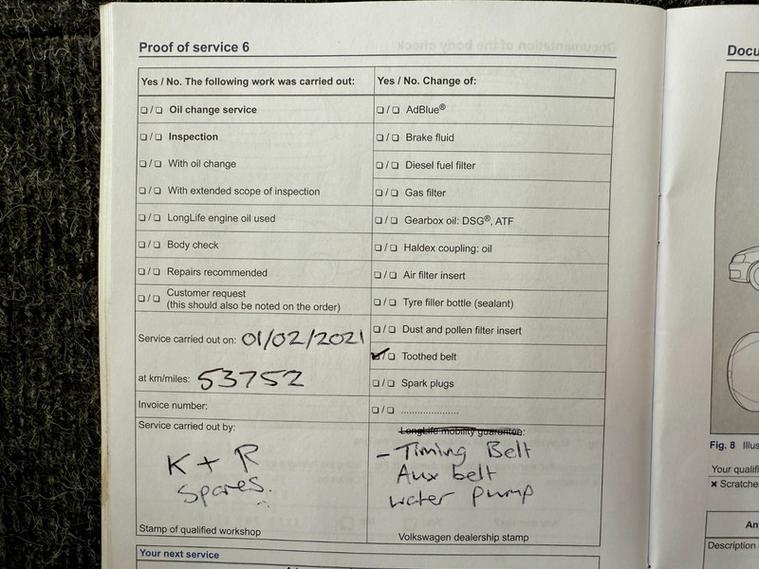 Proof of service 6
Docu
Yes / No. The following work was carried out:
Yes / No. Change of:
❑ / ❑ Oil change service
❑ / ❑ AdBlue®
❑ / ❑ Inspection
❑ / ❑ Brake fluid
❑ / ❑ With oil change
❑ / ❑ Diesel fuel filter
❑ / ❑ With extended scope of inspection
❑ / ❑ Gas filter
❑ / ❑ LongLife engine oil used
❑ / ❑ Gearbox oil: DSG®, ATF
❑ / ❑ Body check
❑ / ❑ Haldex coupling: oil
❑ / ❑ Repairs recommended
❑ / ❑ Air filter insert
❑ / ❑ Customer request
(this should also be noted on the order)
❑ / ❑ Tyre filler bottle (sealant)
Service carried out on: 01/02/2021
❑ / ❑ Dust and pollen filter insert
✓ / ❑ Toothed belt
at km/miles: 53752
❑ / ❑ Spark plugs
Invoice number:
❑ / ❑ .....................
Service carried out by:
LongLife mobility guarantee:
K + R
Spares.
- Timing Belt
Aux belt
water pump
Stamp of qualified workshop
Volkswagen dealership stamp
Your next service
Fig. 8 Illus
Your qualifi
× Scratche
An
Description